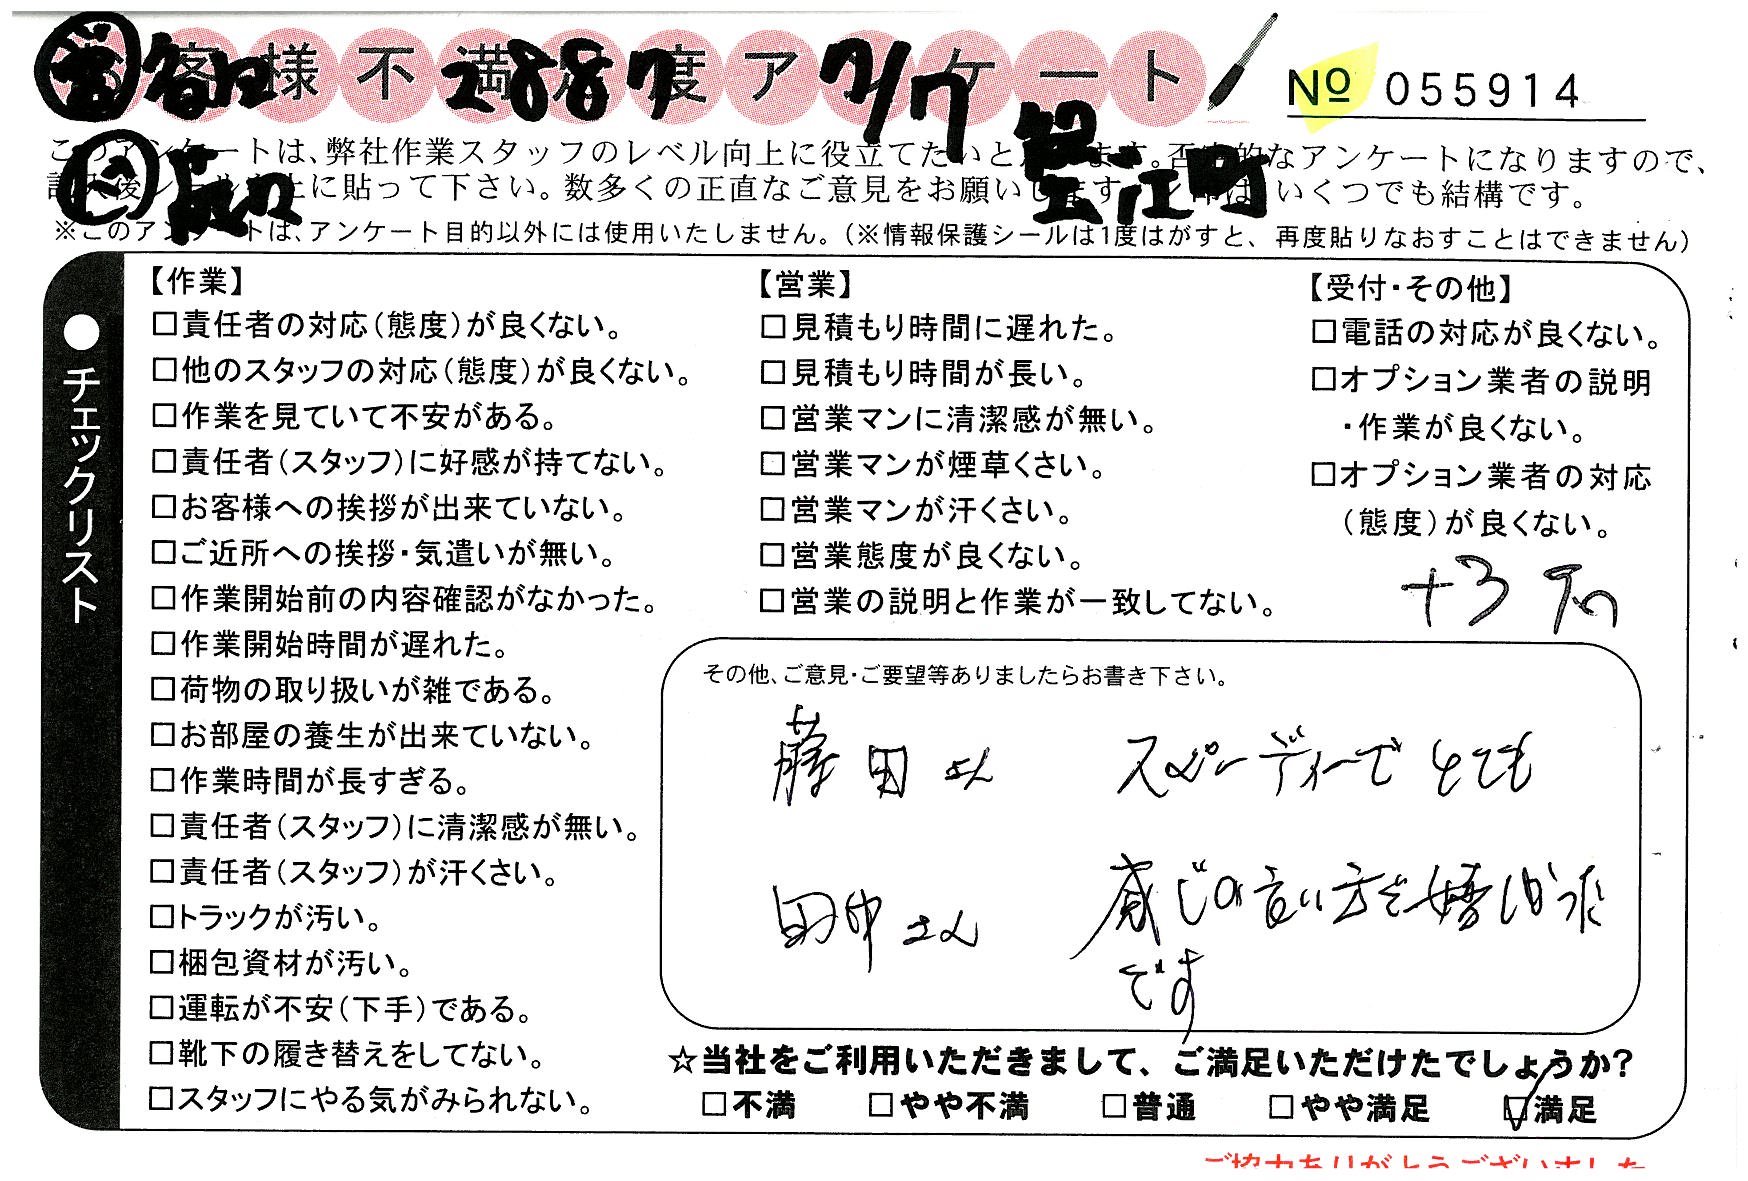 お客様不満足度アンケート
2887 7/17
№ 055914
このアンケートは、弊社作業スタッフのレベル向上に役立てたいと思います。否定的なアンケートになりますので、
記入後シールを上に貼って下さい。数多くの正直なご意見をお願いします。レ印は、いくつでも結構です。
※このアンケートは、アンケート目的以外には使用いたしません。(※情報保護シールは1度はがすと、再度貼りなおすことはできません)
●チェックリスト
【作業】
□責任者の対応(態度)が良くない。
□他のスタッフの対応(態度)が良くない。
□作業を見ていて不安がある。
□責任者(スタッフ)に好感が持てない。
□お客様への挨拶が出来ていない。
□ご近所への挨拶・気遣いが無い。
□作業開始前の内容確認がなかった。
□作業開始時間が遅れた。
□荷物の取り扱いが雑である。
□お部屋の養生が出来ていない。
□作業時間が長すぎる。
□責任者(スタッフ)に清潔感が無い。
□責任者(スタッフ)が汗くさい。
□トラックが汚い。
□梱包資材が汚い。
□運転が不安(下手)である。
□靴下の履き替えをしてない。
□スタッフにやる気がみられない。
【営業】
□見積もり時間に遅れた。
□見積もり時間が長い。
□営業マンに清潔感が無い。
□営業マンが煙草くさい。
□営業マンが汗くさい。
□営業態度が良くない。
□営業の説明と作業が一致してない。
【受付・その他】
□電話の対応が良くない。
□オプション業者の説明
・作業が良くない。
□オプション業者の対応
(態度)が良くない。
+3
その他、ご意見・ご要望等ありましたらお書き下さい。
藤田さん スピーディーでとても
田中さん 感じの良い方で嬉しかった
です
☆当社をご利用いただきまして、ご満足いただけたでしょうか?
□不満 □やや不満 □普通 □やや満足 ☑満足
ご協力ありがとうございました